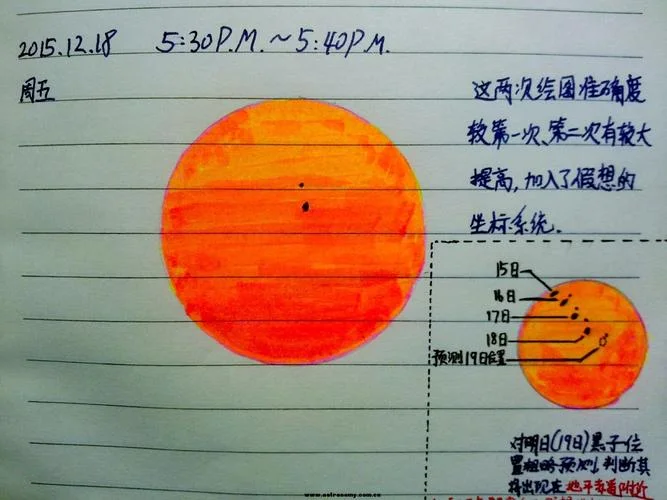 2015.12.18 5:30P.M.~5:40P.M.
周五
这两次绘图准确度
较第一次、第二次有较大
提高,加入了假想的
坐标系统.
15日
16日
17日
18日
预测19日位置
对明日(19日)黑子位
置粗略预测,判断其
将出现在
www.astronomy.com.cn